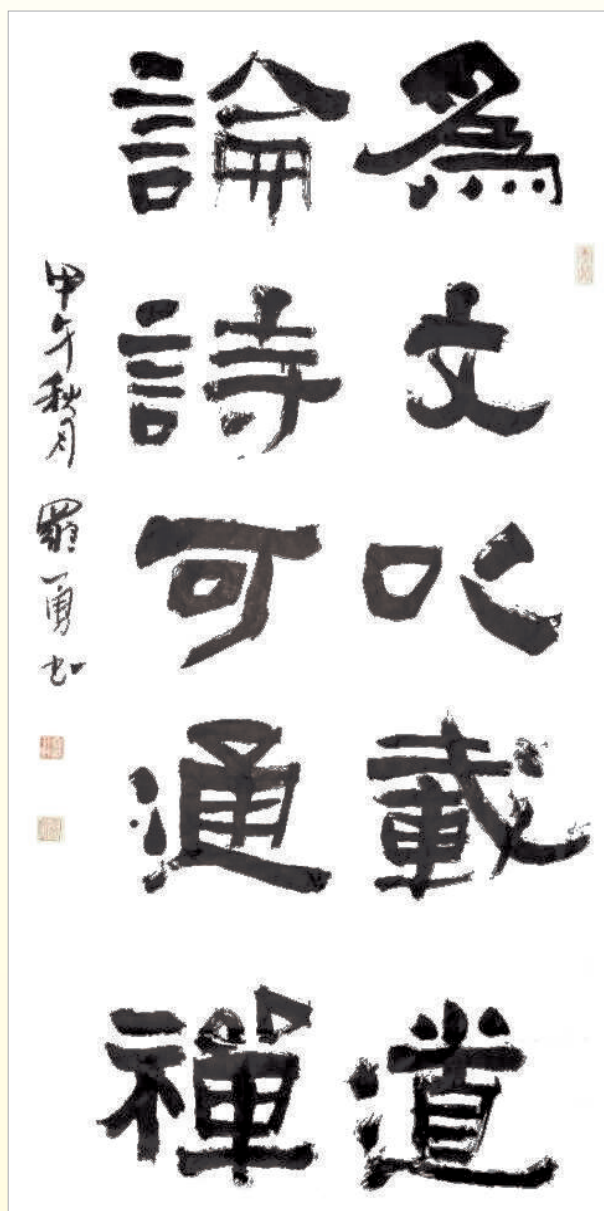 為文以載道
論詩可通禪
甲午秋月 羅勇書